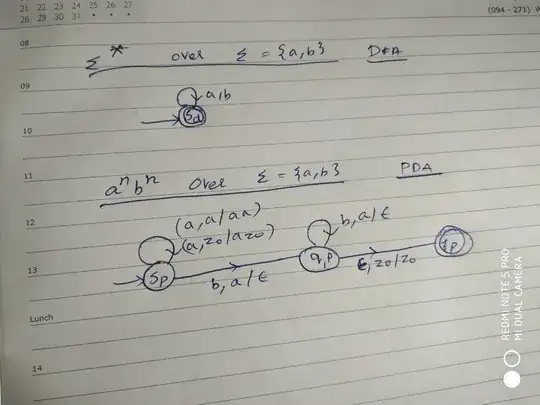 21 22 23 24 25 26 27
28 29 30 31
(094 - 271) W
08
Σ* over Σ = {a,b} DFA
09
a,b
Sd
10
11
aⁿbⁿ over Σ = {a,b} PDA
12
(a,a/aa)
(a,z0/az0)
b,a/ϵ
Sp
q,p
13
b,a/ϵ
ϵ,z0/z0
Lunch
14
REDMI NOTE 5 PRO
MI DUAL CAMERA